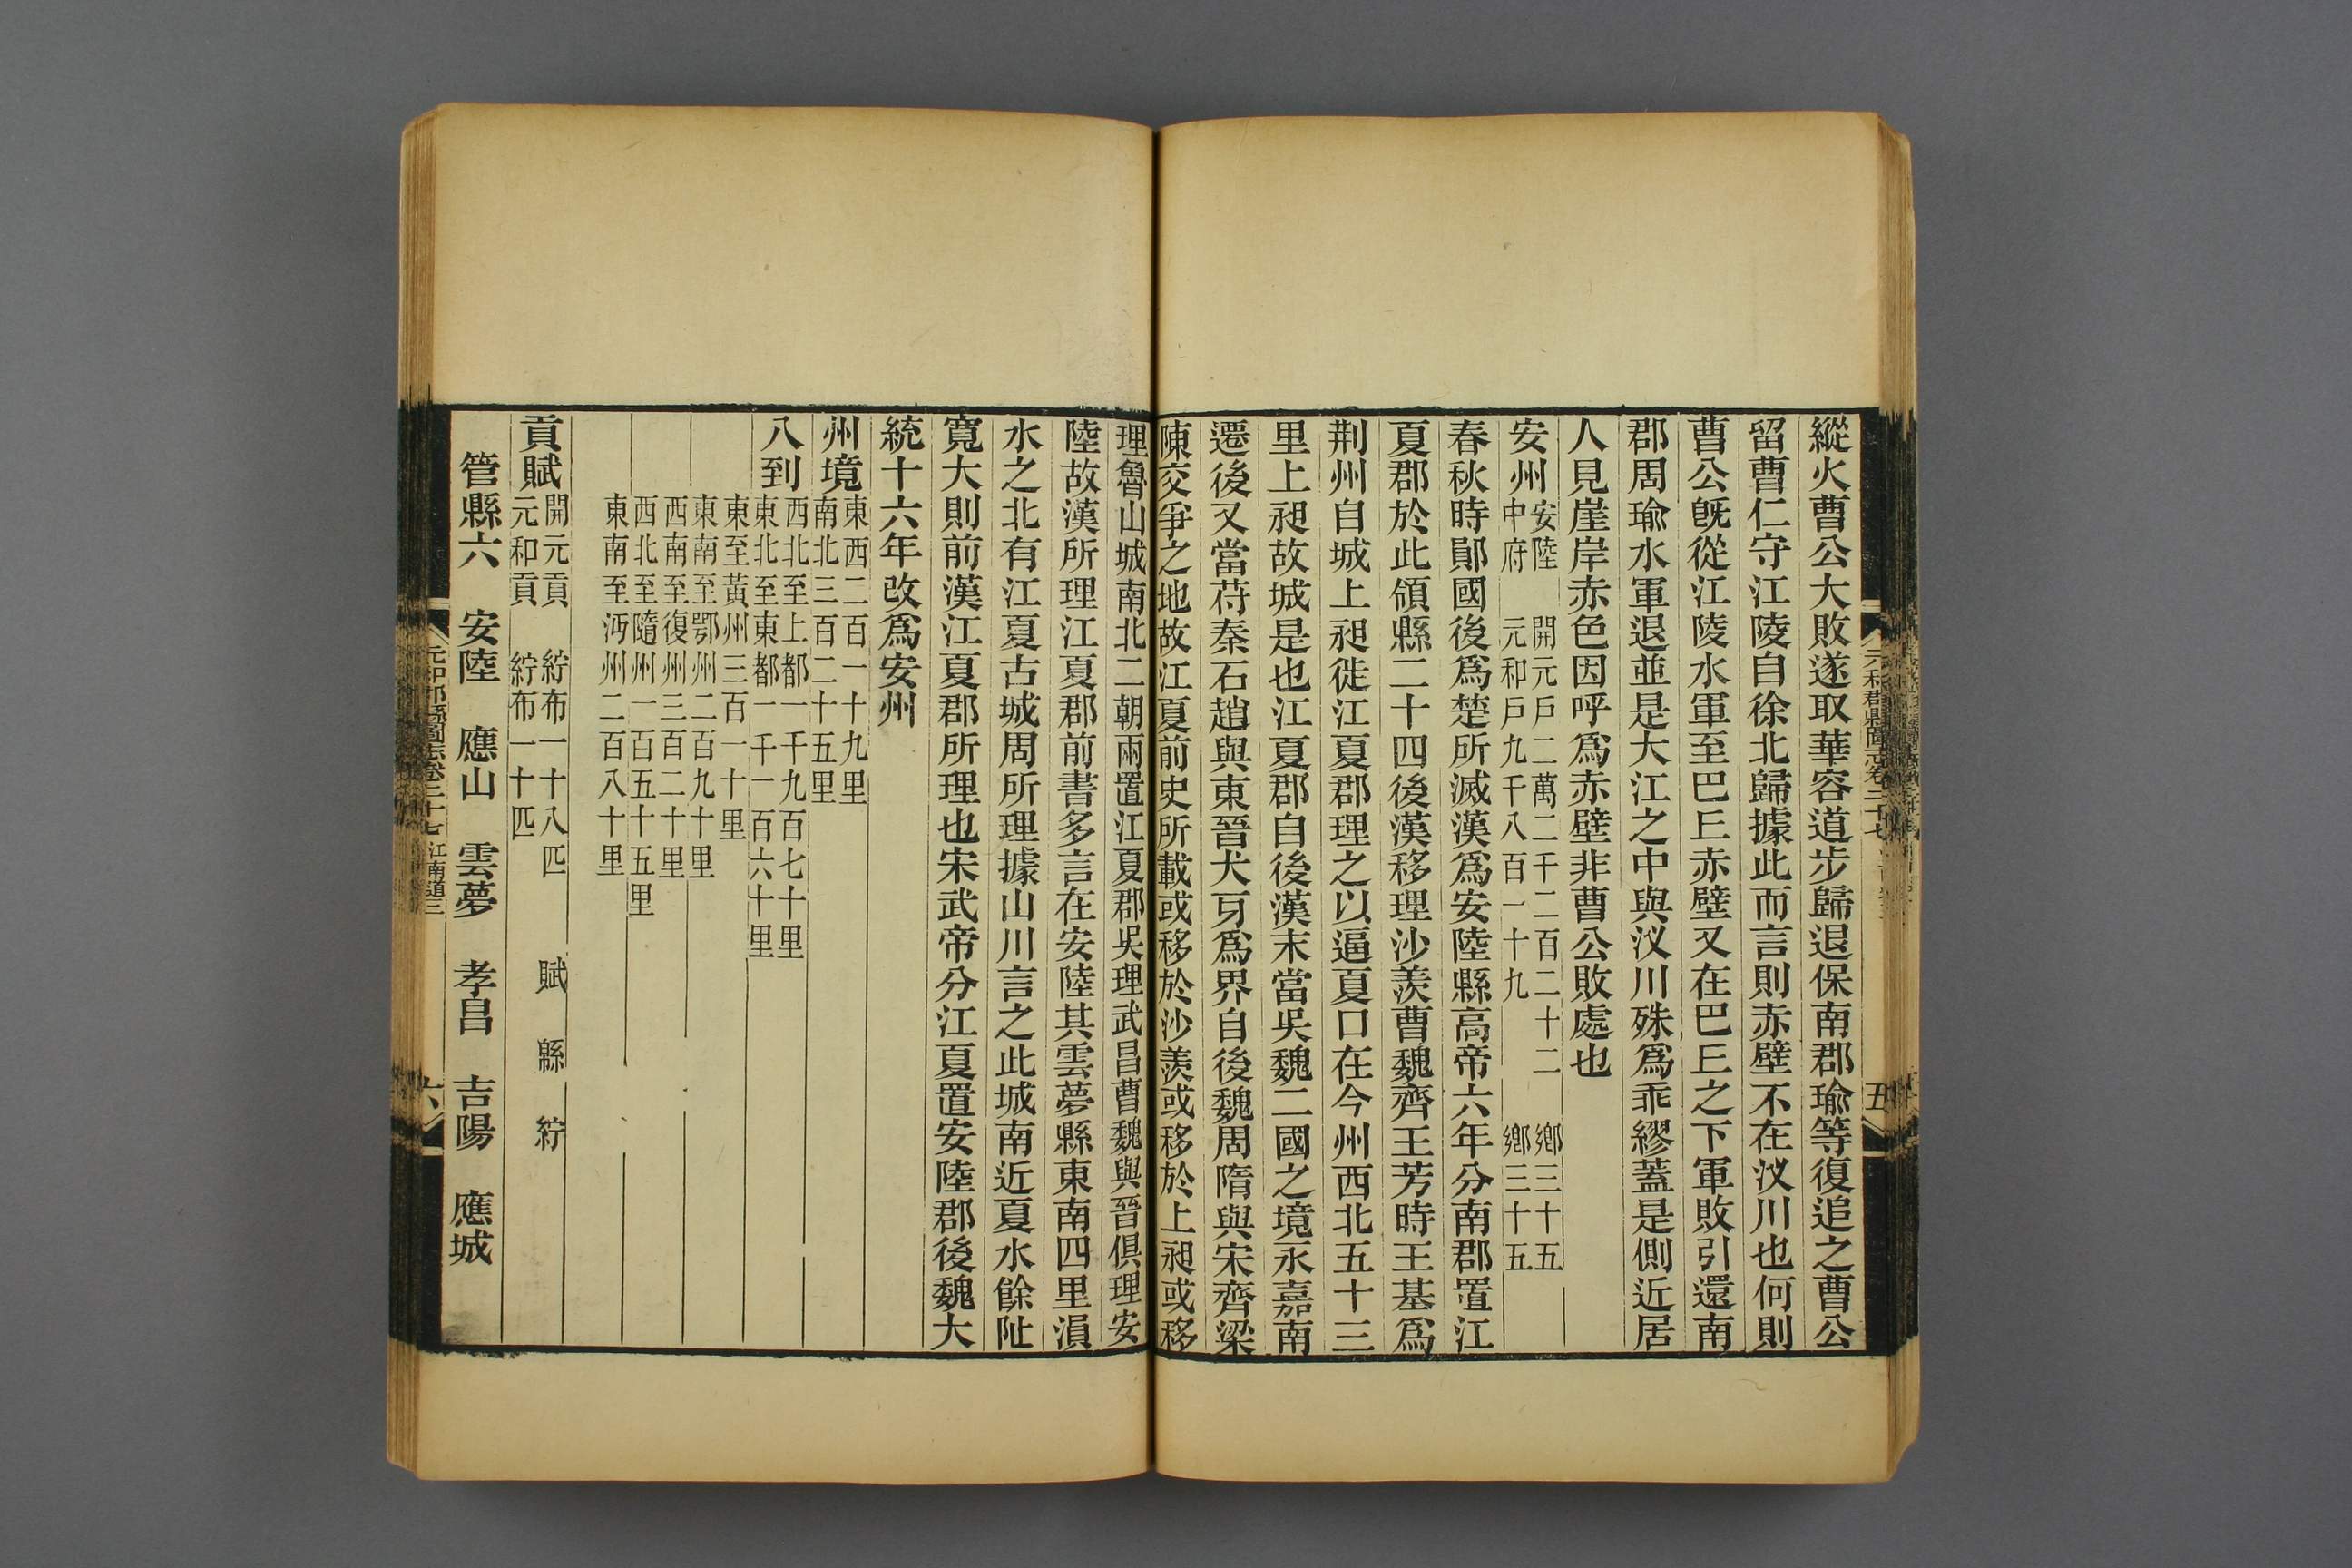 縱火曹公大敗遂取華容道步歸退保南郡瑜等復追之曹公
留曹仁守江陵自徐北歸據此而言則赤壁不在汊川也何則
曹公旣從江陵水軍至巴𠀋赤壁又在巴𠀋之下軍敗引還南
郡周瑜水軍退並是大江之中與汊川殊爲乖繆蓋是側近居
人見崖岸赤色因呼爲赤壁非曹公敗處也
安州
安陸 開元戸二萬二千二百二十二 鄉三十五
中府 元和戸九千八百一十九 鄉三十五
春秋時鄖國後爲楚所滅漢爲安陸縣高帝六年分南郡置江
夏郡於此領縣二十四後漢移理沙羨曹魏齊王芳時王基爲
荆州自城上昶徙江夏郡理之以逼夏口在今州西北五十三
里上昶故城是也江夏郡自後漢末當吳魏二國之境永嘉南
遷後又當苻秦石趙與東晉犬牙爲界自後魏周隋與宋齊梁
陳交爭之地故江夏前史所載或移於沙羨或移於上昶或移
理魯山城南北二朝兩置江夏郡吳理武昌曹魏與晉俱理安
陸故漢所理江夏郡前書多言在安陸其雲夢縣東南四里溳
水之北有江夏古城周所理據山川言之此城南近夏水餘阯
寬大則前漢江夏郡所理也宋武帝分江夏置安陸郡後魏大
統十六年改爲安州
州境
東西二百一十九里
南北三百二十五里
八到
西北至上都一千九百七十里
東北至東都一千一百六十里
東至黃州三百一十里
東南至鄂州二百九十里
西南至復州三百二十里
西北至隨州一百五十五里
東南至沔州二百八十里
貢賦
開元貢 紵布一十八匹 賦 緜 紵
元和貢 紵布一十匹
管縣六 安陸 應山 雲夢 孝昌 吉陽 應城
元和郡縣圖志卷二十七 江南道三
六
元和郡縣圖志卷二十七
五